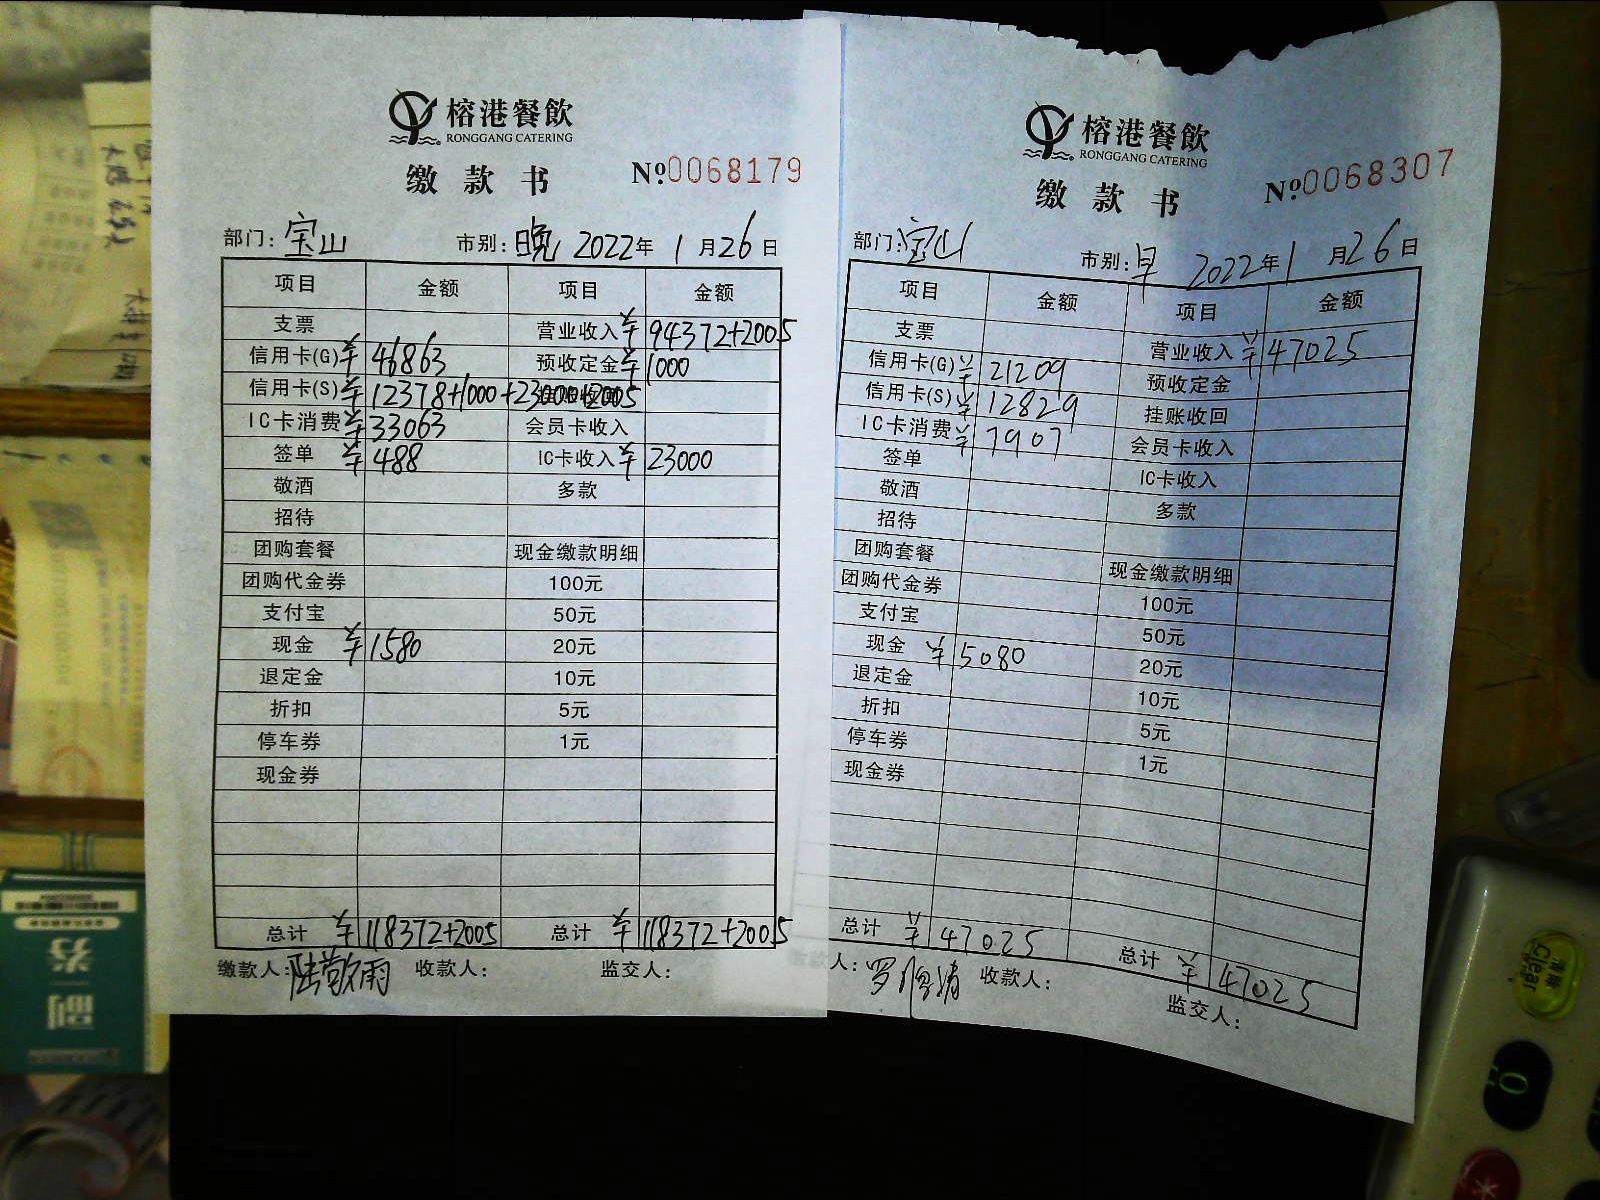 榕港餐飲
RONGGANG CATERING
缴款书 №0068179
部门：宝山 市别：晚 2022年1月26日
项目 金额 项目 金额
支票 营业收入 ¥94372+2005
信用卡(G) ¥46863 预收定金 ¥1000
信用卡(S) ¥12378+1000+23000+2005
IC卡消费 ¥33063 会员卡收入
签单 ¥488 IC卡收入 ¥23000
敬酒 多款
招待
团购套餐 现金缴款明细
团购代金券 100元
支付宝 50元
现金 ¥1580 20元
退定金 10元
折扣 5元
停车券 1元
现金券
总计 ¥118372+2005 总计 ¥118372+2005
缴款人：陆敬雨 收款人： 监交人：
榕港餐飲
RONGGANG CATERING
缴款书 №0068307
部门：宝山 市别：早 2022年1月26日
项目 金额 项目 金额
支票 营业收入 ¥47025
信用卡(G) ¥21209 预收定金
信用卡(S) ¥12829 挂账收回
IC卡消费 ¥7907 会员卡收入
签单 IC卡收入
敬酒 多款
招待
团购套餐 现金缴款明细
团购代金券 100元
支付宝 50元
现金 ¥5080 20元
退定金 10元
折扣 5元
停车券 1元
现金券
总计 ¥47025 总计 ¥47025
人： 收款人： 监交人：
清除
Clear
0